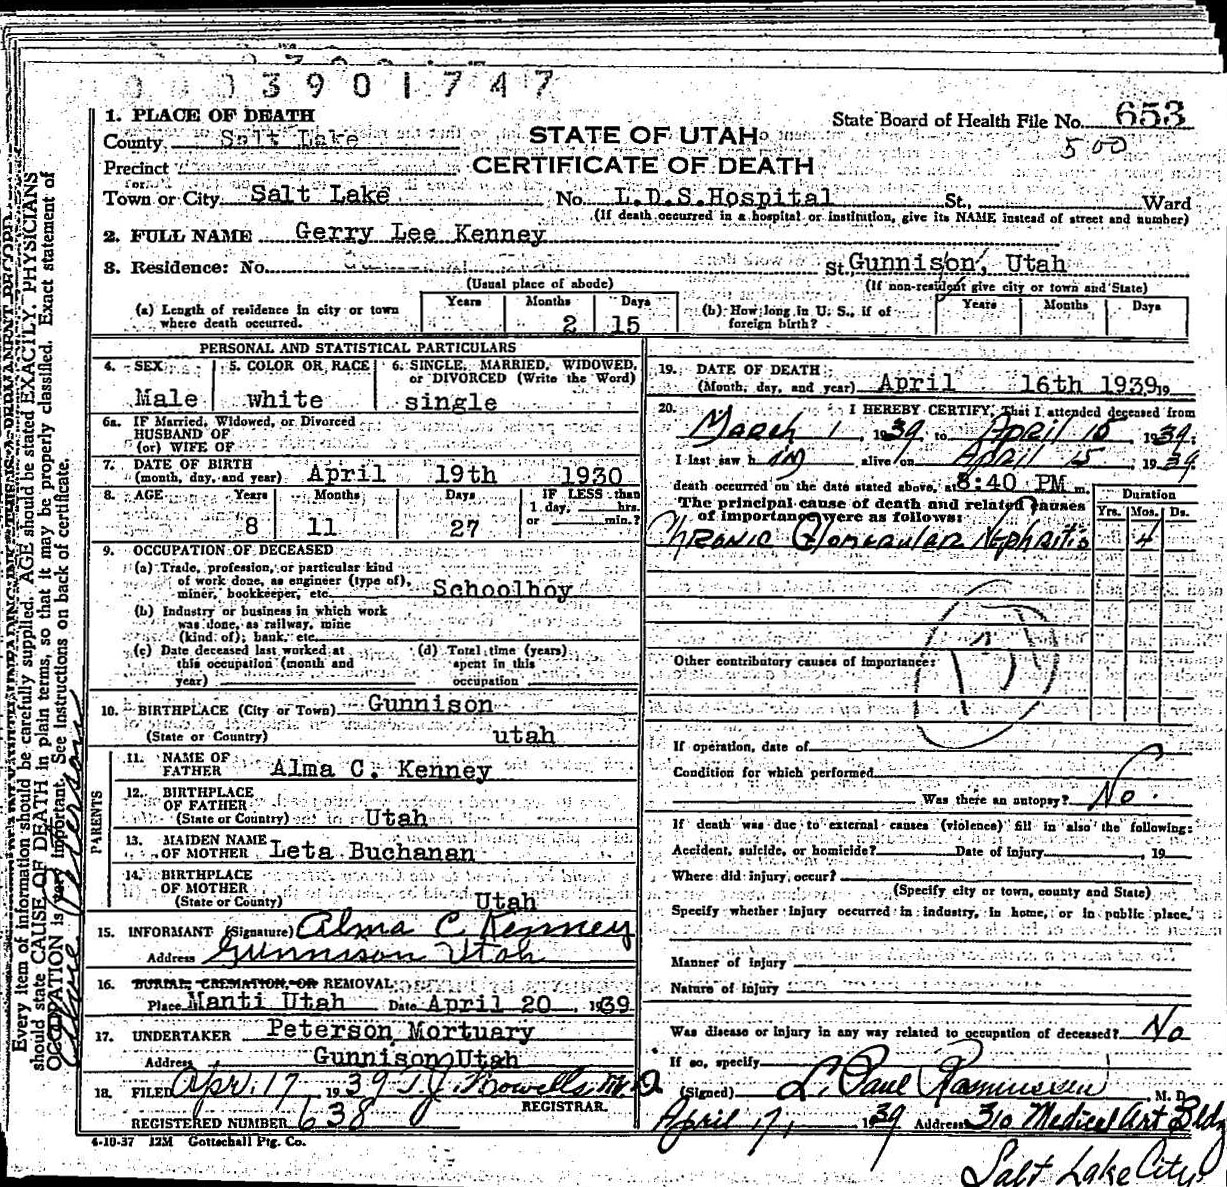 0 0 3 9 0 1 7 4 7
1. PLACE OF DEATH
County Salt Lake
Precinct
or
Town or City Salt Lake
STATE OF UTAH
CERTIFICATE OF DEATH
State Board of Health File No. 653
500
No. L.D.S.Hospital St., Ward
(If death occurred in a hospital or institution, give its NAME instead of street and number)
2. FULL NAME Gerry Lee Kenney
3. Residence: No. St. Gunnison, Utah
(Usual place of abode) (If non-resident give city or town and State)
(a) Length of residence in city or town where death occurred. Years Months 2 Days 15
(b) How long in U. S., if of foreign birth? Years Months Days
PERSONAL AND STATISTICAL PARTICULARS
4. SEX Male
5. COLOR OR RACE white
6. SINGLE, MARRIED, WIDOWED, or DIVORCED (Write the Word) single
6a. IF Married, Widowed, or Divorced
HUSBAND OF
(or) WIFE OF
7. DATE OF BIRTH
(month, day, and year) April 19th 1930
8. AGE Years 8 Months 11 Days 27 IF LESS than 1 day, hrs. or min.?
9. OCCUPATION OF DECEASED
(a) Trade, profession, or particular kind
of work done, as engineer (type of),
miner, bookkeeper, etc. Schoolboy
(b) Industry or business in which work
was done, as railway, mine
(kind of); bank, etc.
(c) Date deceased last worked at
this occupation (month and
year)
(d) Total time (years)
spent in this
occupation
10. BIRTHPLACE (City or Town) Gunnison
(State or Country) utah
PARENTS
11. NAME OF
FATHER Alma C. Kenney
12. BIRTHPLACE
OF FATHER
(State or Country) Utah
13. MAIDEN NAME
OF MOTHER Leta Buchanan
14. BIRTHPLACE
OF MOTHER
(State or County) Utah
15. INFORMANT (Signature) Alma C Kenney
Address Gunnison Utah
16. BURIAL, CREMATION, OR REMOVAL
Place Manti Utah Date April 20, 1939
17. UNDERTAKER Peterson Mortuary
Address Gunnison Utah
18. FILED Apr. 17 1939 T.J. Howells M.D.
REGISTRAR.
REGISTERED NUMBER 638
4-10-37 12M Gottschall Ptg. Co.
19. DATE OF DEATH
(Month, day, and year) April 16th 1939, 19
20. I HEREBY CERTIFY, That I attended deceased from
March 1, 1939, to April 15, 1939,
I last saw h im alive on April 15, 1939
death occurred on the date stated above, at 8:40 PM m.
The principal cause of death and related causes
of importance were as follows:
Duration
Yrs. Mos. Ds.
Chronic Glomerular Nephritis 4
Other contributory causes of importance:
If operation, date of
Condition for which performed
Was there an autopsy? No.
If death was due to external causes (violence) fill in also the following:
Accident, suicide, or homicide? Date of Injury , 19
Where did injury occur?
(Specify city or town, county and State)
Specify whether injury occurred in industry, in home, or in public place.
Manner of injury
Nature of Injury
Was disease or injury in any way related to occupation of deceased? No
If so, specify
(Signed) L. Paul Rasmussen M. D.
April 17, 1939 Address 310 Medical Art Bldg
Salt Lake City
Every item of information should be carefully supplied. AGE should be stated EXACTLY. PHYSICIANS
should state CAUSE OF DEATH in plain terms, so that it may be properly classified. Exact statement of
OCCUPATION is very important. See instructions on back of certificate.